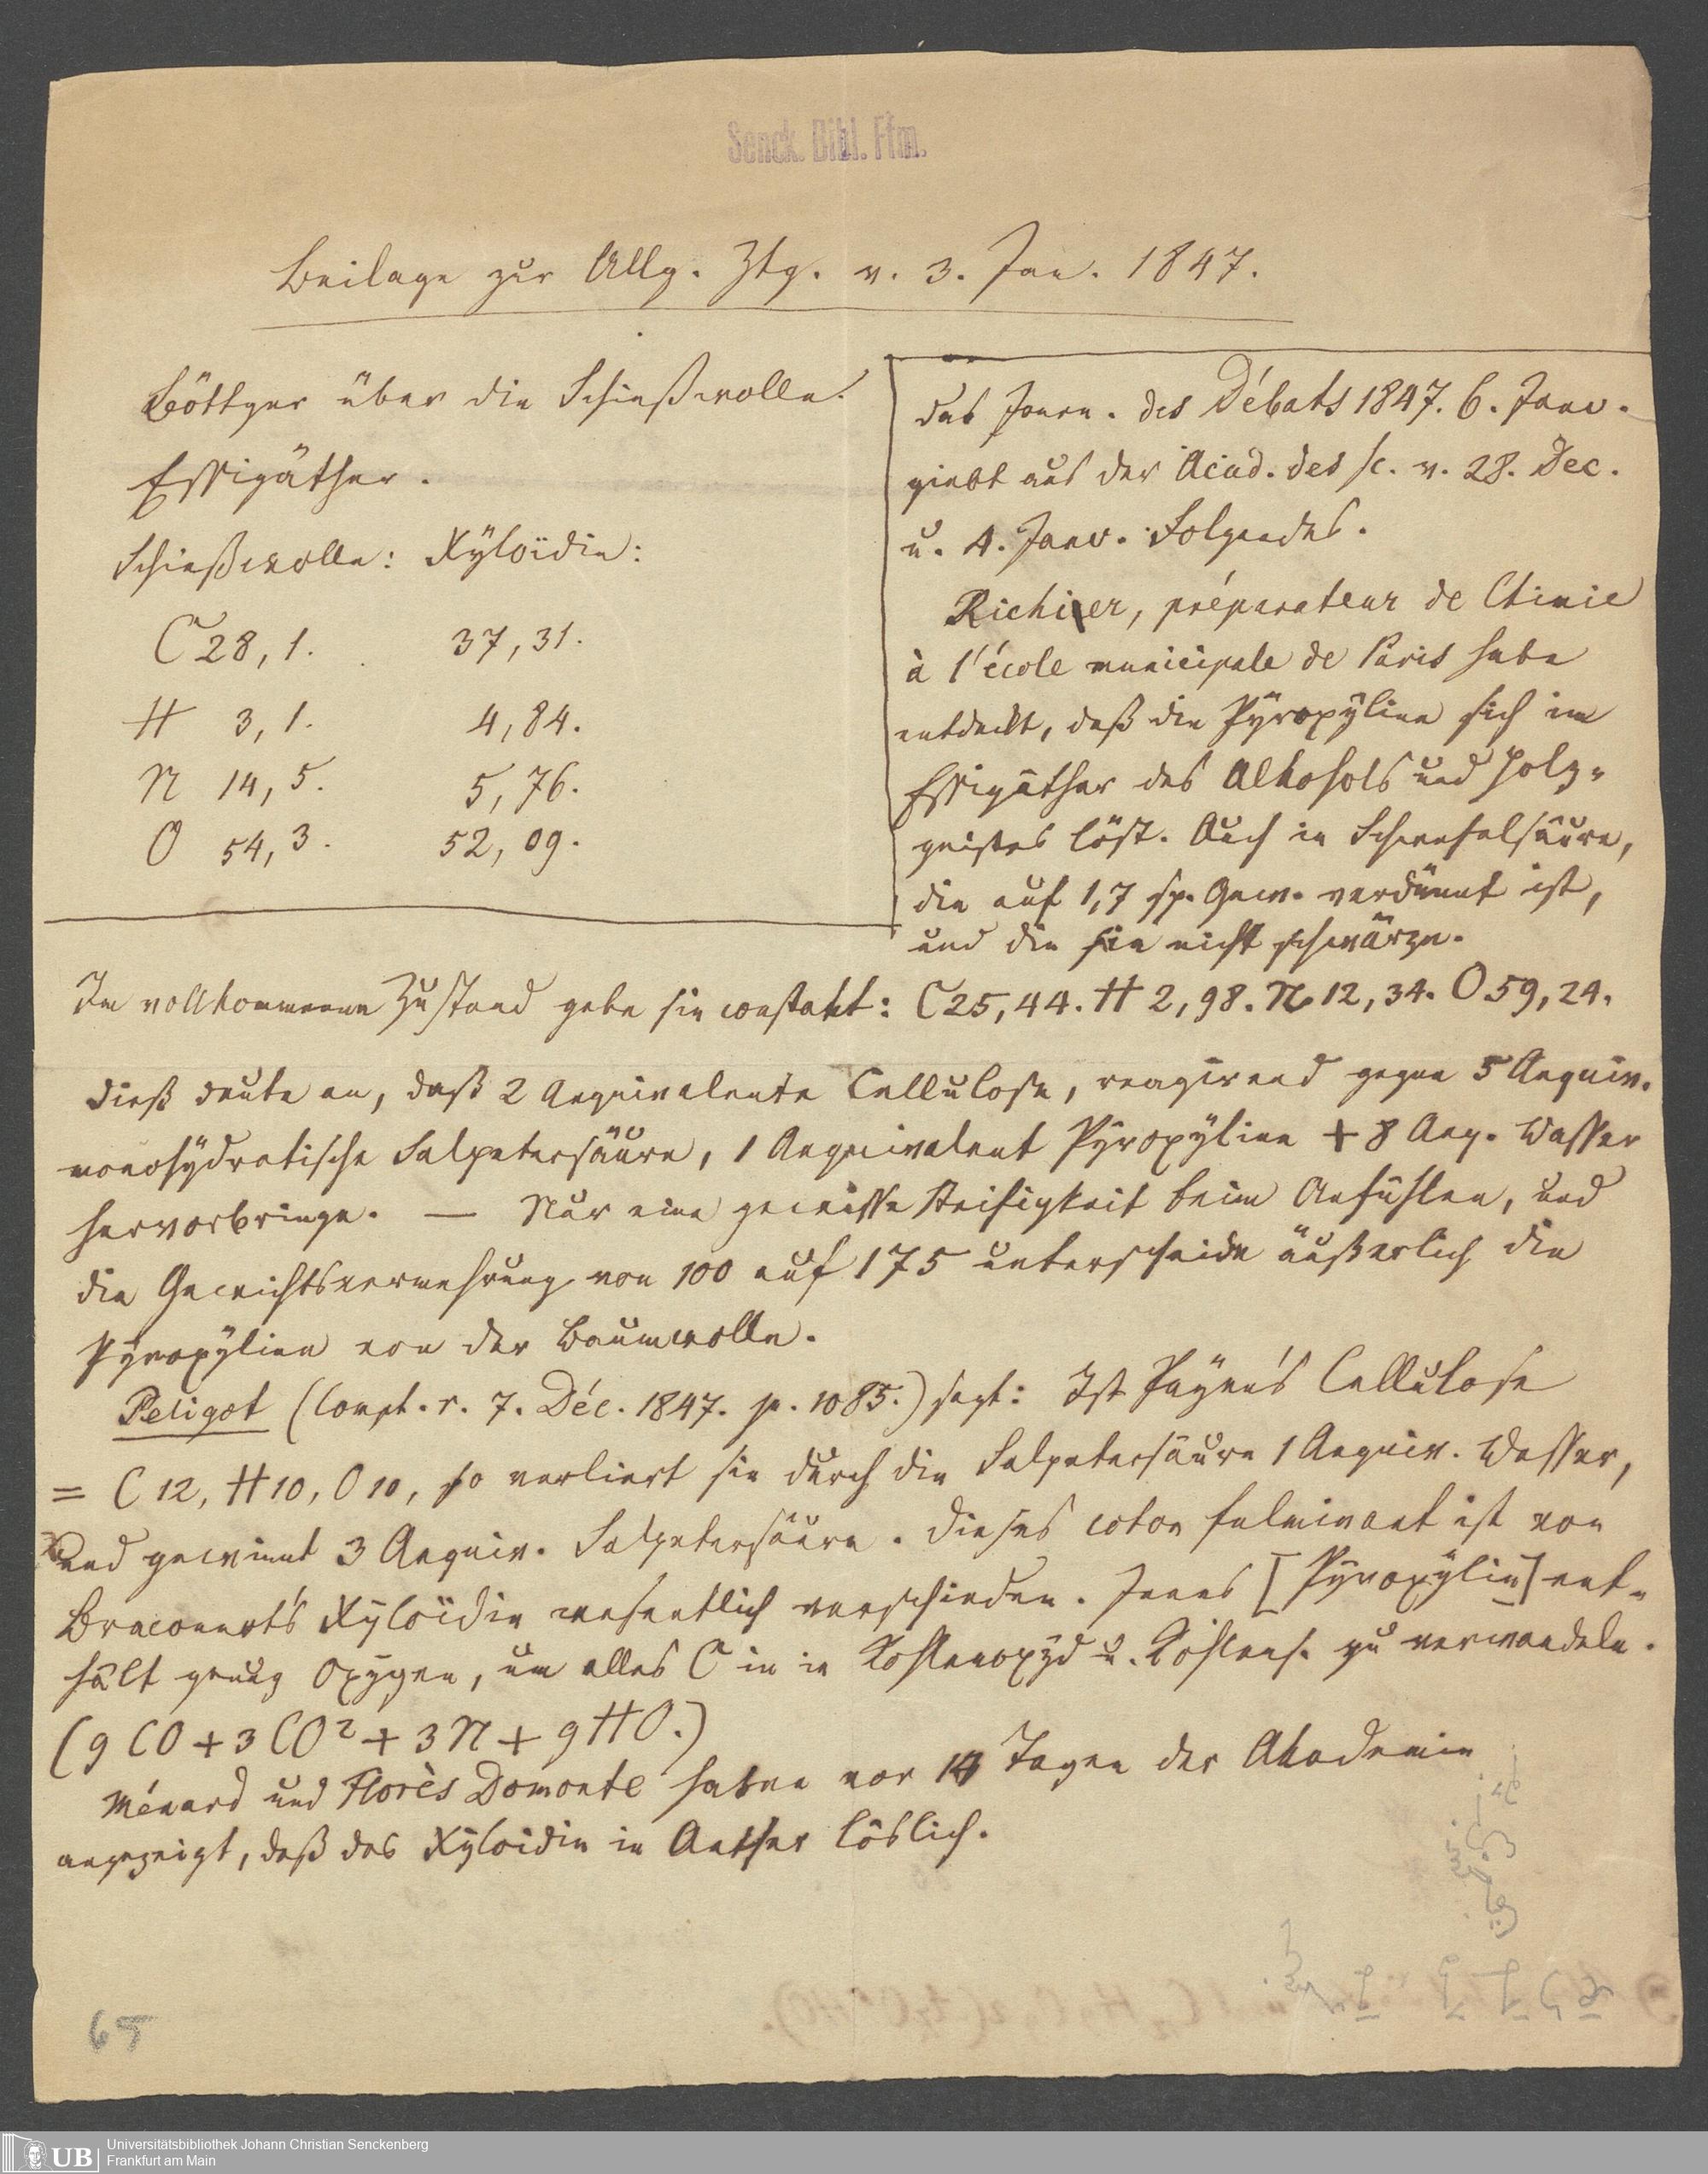 Senck. Bibl. Ffm.
Beilage zur Allg. Ztg. v. 3. Jan. 1847.
Böttger über die Schießwolle.
Essigäther.
Schießwolle: Xÿloïdin:
C 28,1. 37,31.
H 3,1. 4,84.
N 14,5. 5,76.
O 54,3. 52,09.
Das Journ. des Débats 1847. 6. Janv.
giebt aus der Acad. des sc. v. 28. Dec.
u. 4. Janv. Folgendes.
Richier, préparateur de Chimie
à l'école municipale de Paris habe
entdeckt, daß die Pÿroxÿline sich im
Essigäther des Alkohols und Holz-
geistes löst. Auch in Schwefelsäure,
die auf 1,7 sp. Gew. verdünnt ist,
und die sie nicht schwärze.
Im vollkommenen Zustand gebe sie constant: C 25,44. H 2,98. N 12,34. O 59,24.
Dieß deute an, daß 2 Aequivalente Cellulose, reagirend gegen 5 Aequiv.
monohÿdratische Salpetersäure, 1 Aequivalent Pÿroxÿline + 8 Aeq. Wasser
hervorbringe. — Nur eine gewisse Steifigkeit beim Anfühlen, und
die Gewichtsvermehrung von 100 auf 175 unterscheide äußerlich die
Pÿroxÿline von der Baumwolle.
Peligot (Compt. r. 7. Déc. 1847. p. 1085.) sagt: Ist Paÿen's Cellulose
= C 12, H 10, O 10, so verliert sie durch die Salpetersäure 1 Aequiv. Wasser,
und gewinnt 3 Aequiv. Salpetersäure. Dieses coton fulminant ist von
Braconnot's Xÿloïdin wesentlich verschieden. Jenes [Pÿroxÿlin] ent-
hält genug Oxÿgen, um alles C in in Kohlenoxÿd u. Kohlens. zu verwandeln.
(9 CO + 3 CO² + 3 N + 9 HO.)
Ménard und Florès Domonte haben vor 14 Tagen der Akademie
angezeigt, daß das Xÿloidin in Aether löslich.
65
UB
Universitätsbibliothek Johann Christian Senckenberg
Frankfurt am Main